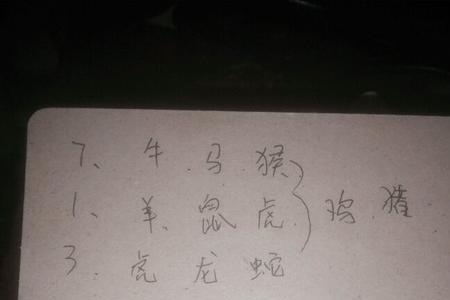 7、牛.马.猴
1、羊、鼠虎.}鸡.猪
3.虎龙蛇